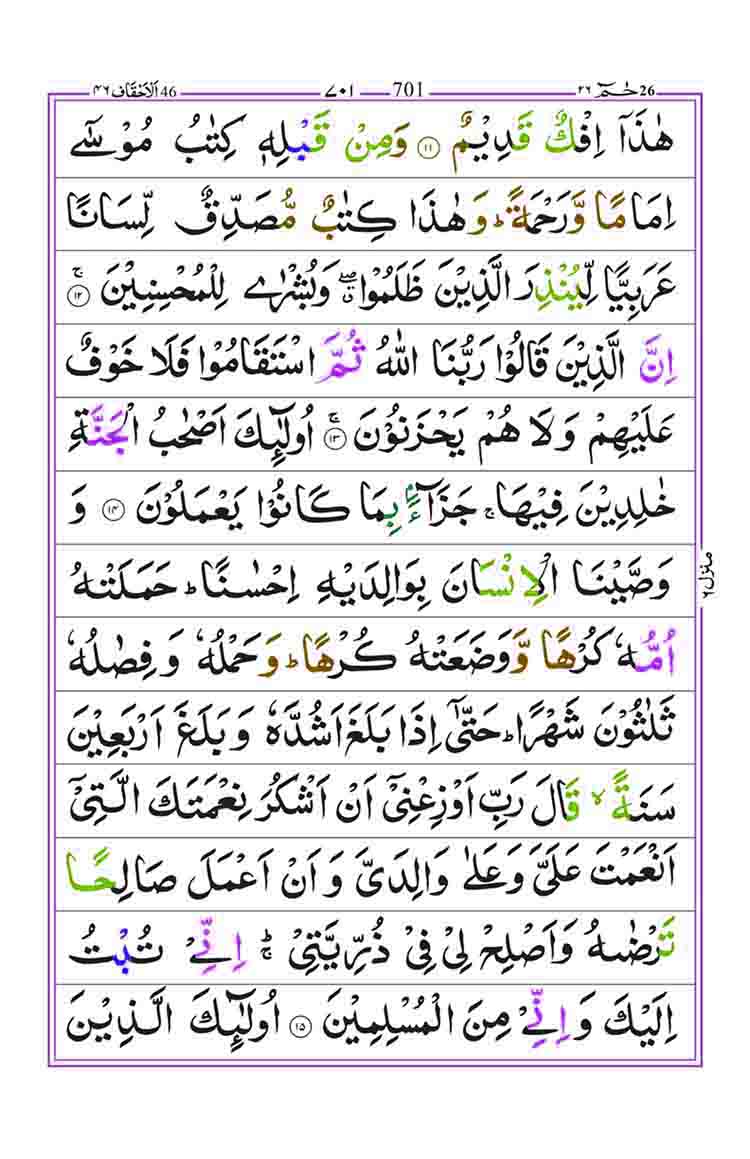 حٰمٓ 26 ٢٦ 701 ٧٠١ 46 اَلْاَحْقَاف ٤٦
هٰذَاۤ اِفْكٌ قَدِيْمٌ ﴿۱۱﴾ وَمِنْ قَبْلِهٖ كِتٰبُ مُوْسٰۤى
اِمَامًا وَّرَحْمَةً ؕ وَهٰذَا كِتٰبٌ مُّصَدِّقٌ لِّسَانًا
عَرَبِيًّا لِّيُنْذِرَ الَّذِيْنَ ظَلَمُوْا ۖۗ وَبُشْرٰى لِلْمُحْسِنِيْنَ ۚ﴿۱۲﴾
اِنَّ الَّذِيْنَ قَالُوْا رَبُّنَا اللّٰهُ ثُمَّ اسْتَقَامُوْا فَلَا خَوْفٌ
عَلَيْهِمْ وَلَا هُمْ يَحْزَنُوْنَ ۚ﴿۱۳﴾ اُولٰٓئِكَ اَصْحٰبُ الْجَنَّةِ
خٰلِدِيْنَ فِيْهَا ۚ جَزَآءًۢ بِمَا كَانُوْا يَعْمَلُوْنَ ﴿۱۴﴾ وَ
وَصَّيْنَا الْاِنْسَانَ بِوَالِدَيْهِ اِحْسٰنًا ؕ حَمَلَتْهُ
اُمُّهٗ كُرْهًا وَّوَضَعَتْهُ كُرْهًا ؕ وَحَمْلُهٗ وَفِصٰلُهٗ
ثَلٰثُوْنَ شَهْرًا ؕ حَتّٰۤى اِذَا بَلَغَ اَشُدَّهٗ وَبَلَغَ اَرْبَعِيْنَ
سَنَةً ۙ قَالَ رَبِّ اَوْزِعْنِىْۤ اَنْ اَشْكُرَ نِعْمَتَكَ الَّتِىْۤ
اَنْعَمْتَ عَلَىَّ وَعَلٰى وَالِدَىَّ وَاَنْ اَعْمَلَ صَالِحًا
تَرْضٰىهُ وَاَصْلِحْ لِىْ فِىْ ذُرِّيَّتِىْ ؕ اِنِّىْ تُبْتُ
اِلَيْكَ وَاِنِّىْ مِنَ الْمُسْلِمِيْنَ ﴿۱۵﴾ اُولٰٓئِكَ الَّذِيْنَ
منزل ٦